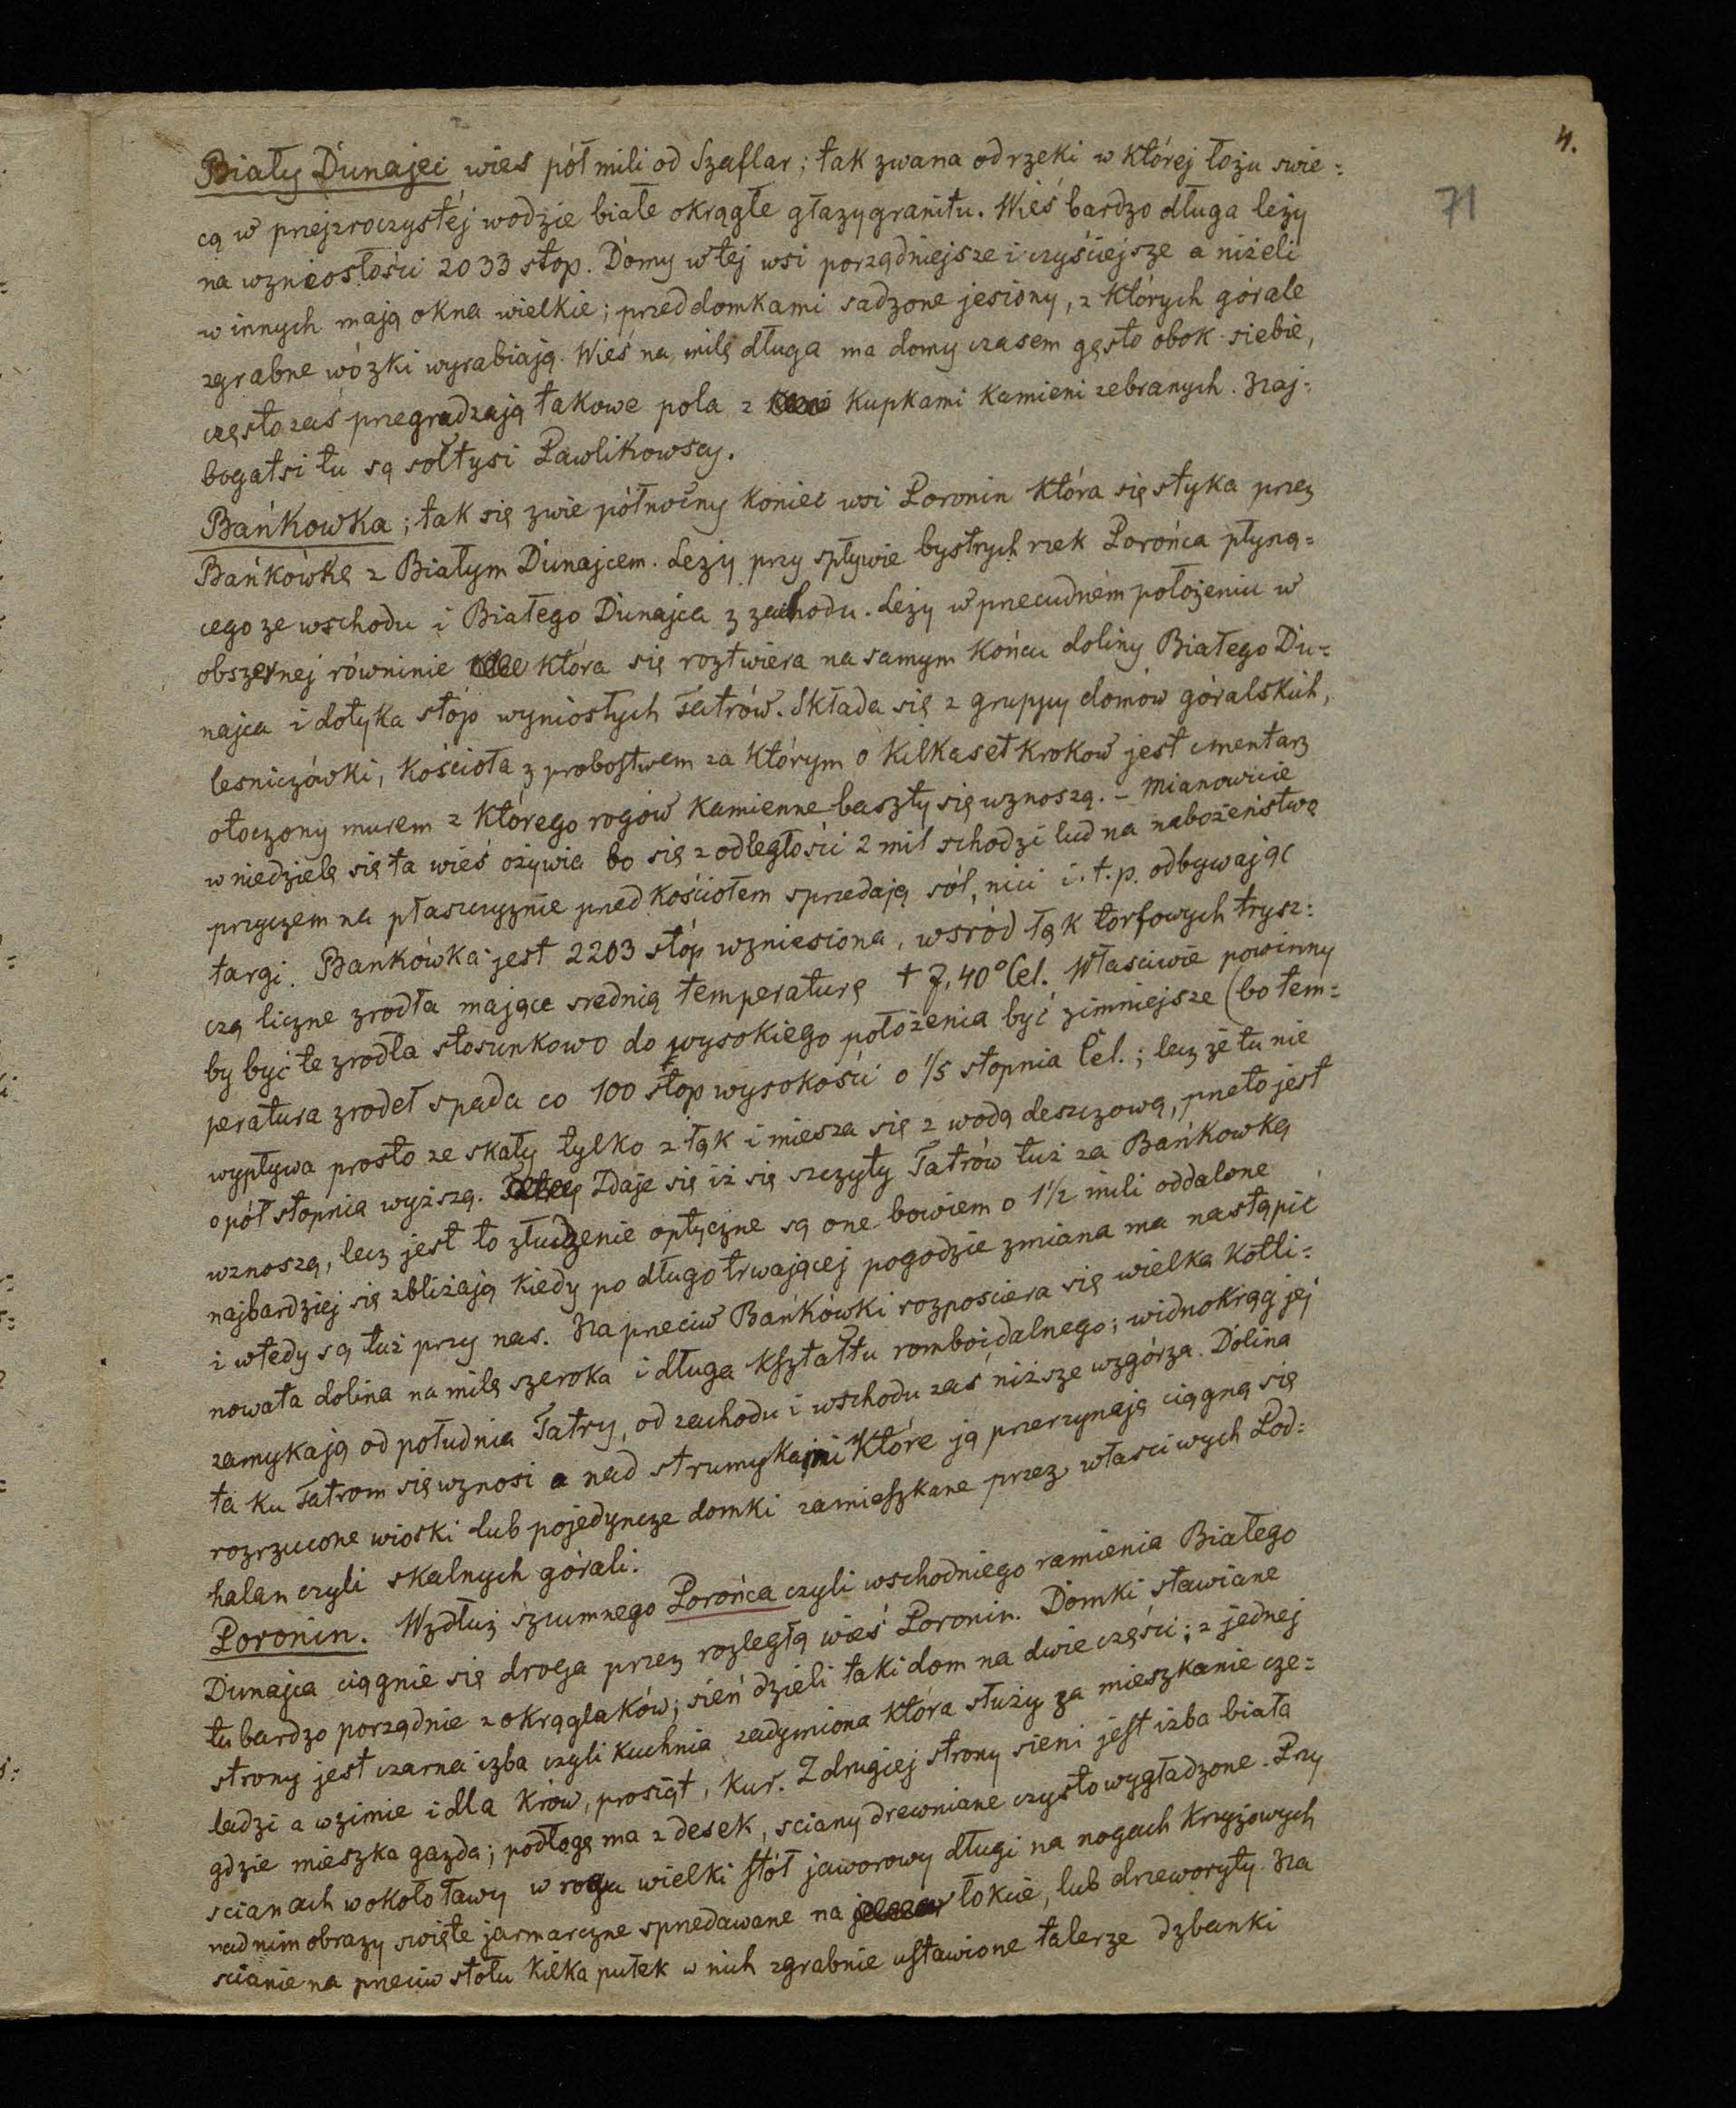 4.
71
Biały Dunajec wies pół mili od Szaflar; tak zwana od rzeki w której łożu swie=
cą w przejzroczystéj wodzie białe okrągłe głazy granitu. Wieś bardzo długa leży
na wzniosłości 2033 stop. Domy w tej wsi porządniejsze i czyściejsze a niżeli
w innych mają okna wielkie; przed domkami sadzone jesiony, z których górale
zgrabne wózki wyrabiają. Wieś na milę długa ma domy czasem gęsto obok siebie,
często zaś przegradzają takowe pola z kupkami kamieni zebranych. Naj=
bogatsi tu są sołtysi Pawlikowscy.
Bańkowka; tak się zwie północny koniec wsi Poronin która się styka przez
Bańkówkę z Białym Dunajcem. Leży przy spływie bystrych rzek Porońca płyną=
cego ze wschodu i Białego Dunajca z zachodu. Leży w przecudném położeniu w
obszernej równinie która się roztwiera na samym końcu doliny Białego Du=
najca i dotyka stóp wyniosłych Tatrów. Składa się z gruppy domów góralskich,
lesniczówki, kościoła z probostwem za którym o kilkaset kroków jest cmentarz
otoczony murem z którego rogów kamienne baszty się wznoszą. – Mianowicie
w niedzielę się ta wieś ożywia bo się z odległości 2 mil schodzi lud na nabożeństwo
przyczem na płaszczyznie przed kościołem sprzedają sól, nici i. t. p. odbywając
targi. Bańkówka jest 2203 stóp wzniesiona, wsród łąk torfowych trysz=
czą liczne zrodła mające srednią temperaturę + 7,40° Cel. Własciwie powinny
by być te zrodła stosunkowo do wysokiego położenia być zimniejsze (bo tem=
peratura zrodeł spada co 100 stop wysokości o 1/5 stopnia Cel.; lecz że tu nie
wypływa prosto ze skały tylko z łąk i miesza się z wodą deszczową, przeto jest
o pół stopnia wyższą. Zdaje się iż się szczyty Tatrów tuż za Bańkowką
wznoszą, lecz jest to złudzenie optyczne są one bowiem o 1 1/2 mili oddalone
najbardziej się zbliżają kiedy po długo trwającej pogodzie zmiana ma nastąpić
i wtedy są tuż przy nas. Naprzeciw Bańkówki rozposciera się wielka kotli=
nowata dolina na milę szeroka i długa kształtu romboidalnego; widnokrąg jej
zamykają od południa Tatry, od zachodu i wschodu zaś niższe wzgórza. Dolina
ta ku Tatrom się wznosi a nad strumykami które ją przerzynają ciągną się
rozrzucone wioski lub pojedyncze domki zamieszkane przez własciwych Pod=
halan czyli skalnych górali.
Poronin. Wzdłuż szumnego Porońca czyli wschodniego ramienia Białego
Dunajca ciągnie się droga przez rozległą wieś Poronin. Domki stawiane
tu bardzo porządnie z okrąglaków; sień dzieli taki dom na dwie części; z jednej
strony jest czarna izba czyli kuchnia zadymiona która służy za mieszkanie cze=
ladzi a w zimie i dla krów, prosiąt, kur. Z drugiej strony sieni jest izba biała
gdzie mieszka gazda; podłogę ma z desek, sciany drewniane czysto wygładzone. Przy
scianach wokoło ławy w rogu wielki stół jaworowy długi na nogach krzyżowych
nad nim obrazy swięte jarmarczne sprzedawane na łokcie, lub drzeworyty. Na
scianie na przeciw stołu kilka pułek w nich zgrabnie ustawione talerze dzbanki